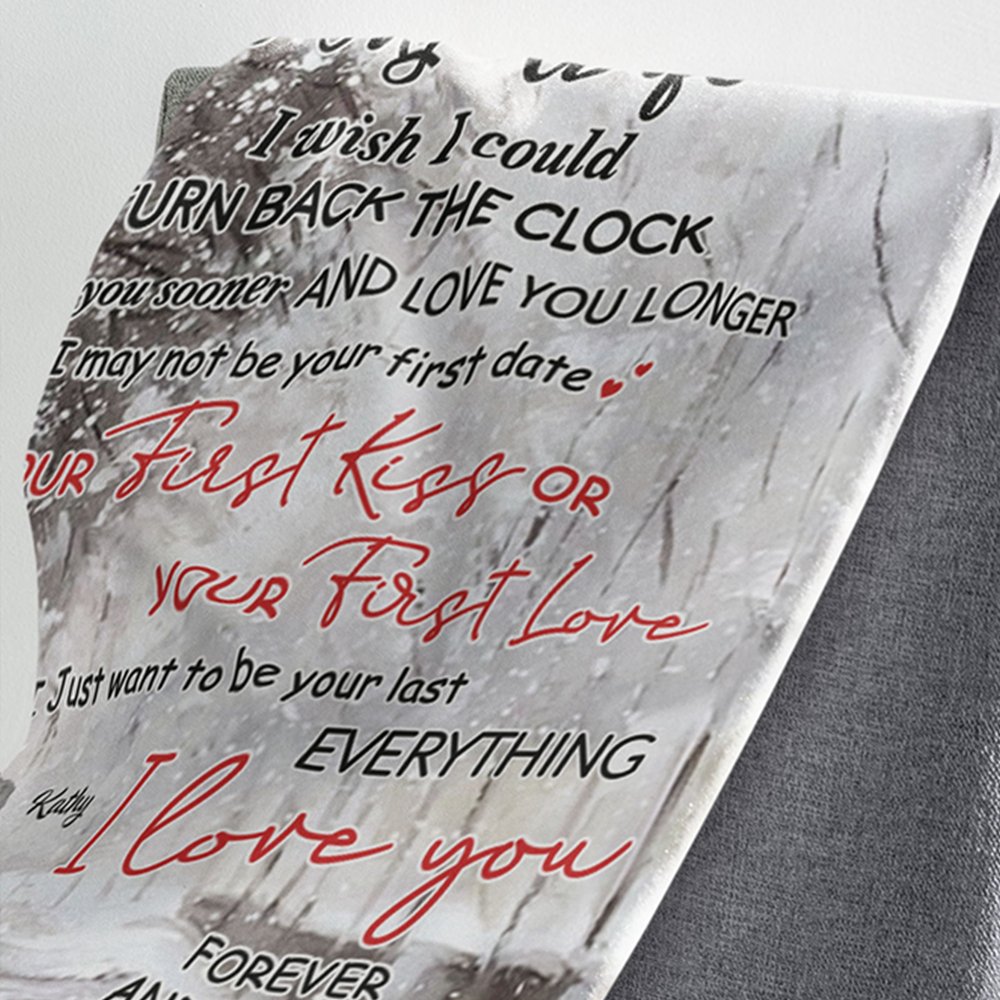 I wish I could
URN BACK THE CLOCK
you sooner AND LOVE YOU LONGER
I may not be your first date
OUR First Kiss OR
YOUR First Love
I Just want to be your last
EVERYTHING
Kathy
I love you
FOREVER